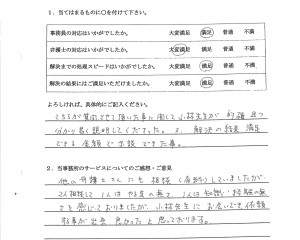 1．当てはまるものに○を付けて下さい。
事務長の対応はいかがでしたか。 大変満足 満足 普通 不満
弁護士の対応はいかがでしたか。 大変満足 満足 普通 不満
解決までの処理スピードはいかがでしたか。 大変満足 満足 普通 不満
解決の結果にはご満足いただけましたか。 大変満足 満足 普通 不満
よろしければ、具体的にご記入ください。
こちらが質問させて頂いた事に関して小林先生が的確且つ
分かり易く説明してくださった。又、解決の結果満足
できる金額で示談できた事。
2．当事務所のサービスについてのご感想・ご意見
他の弁護士さんにも相談
2人相談して1人はやる気の無さ、1人は知識・経験の無
さを感じておりましたが、小林先生にお会いでき依頼
する事が出来良かったと思っております。